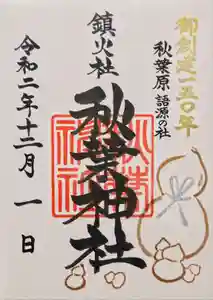 御創建一五〇年
秋葉原 語源の社
鎮火社
秋葉神社
令和二年十二月一日